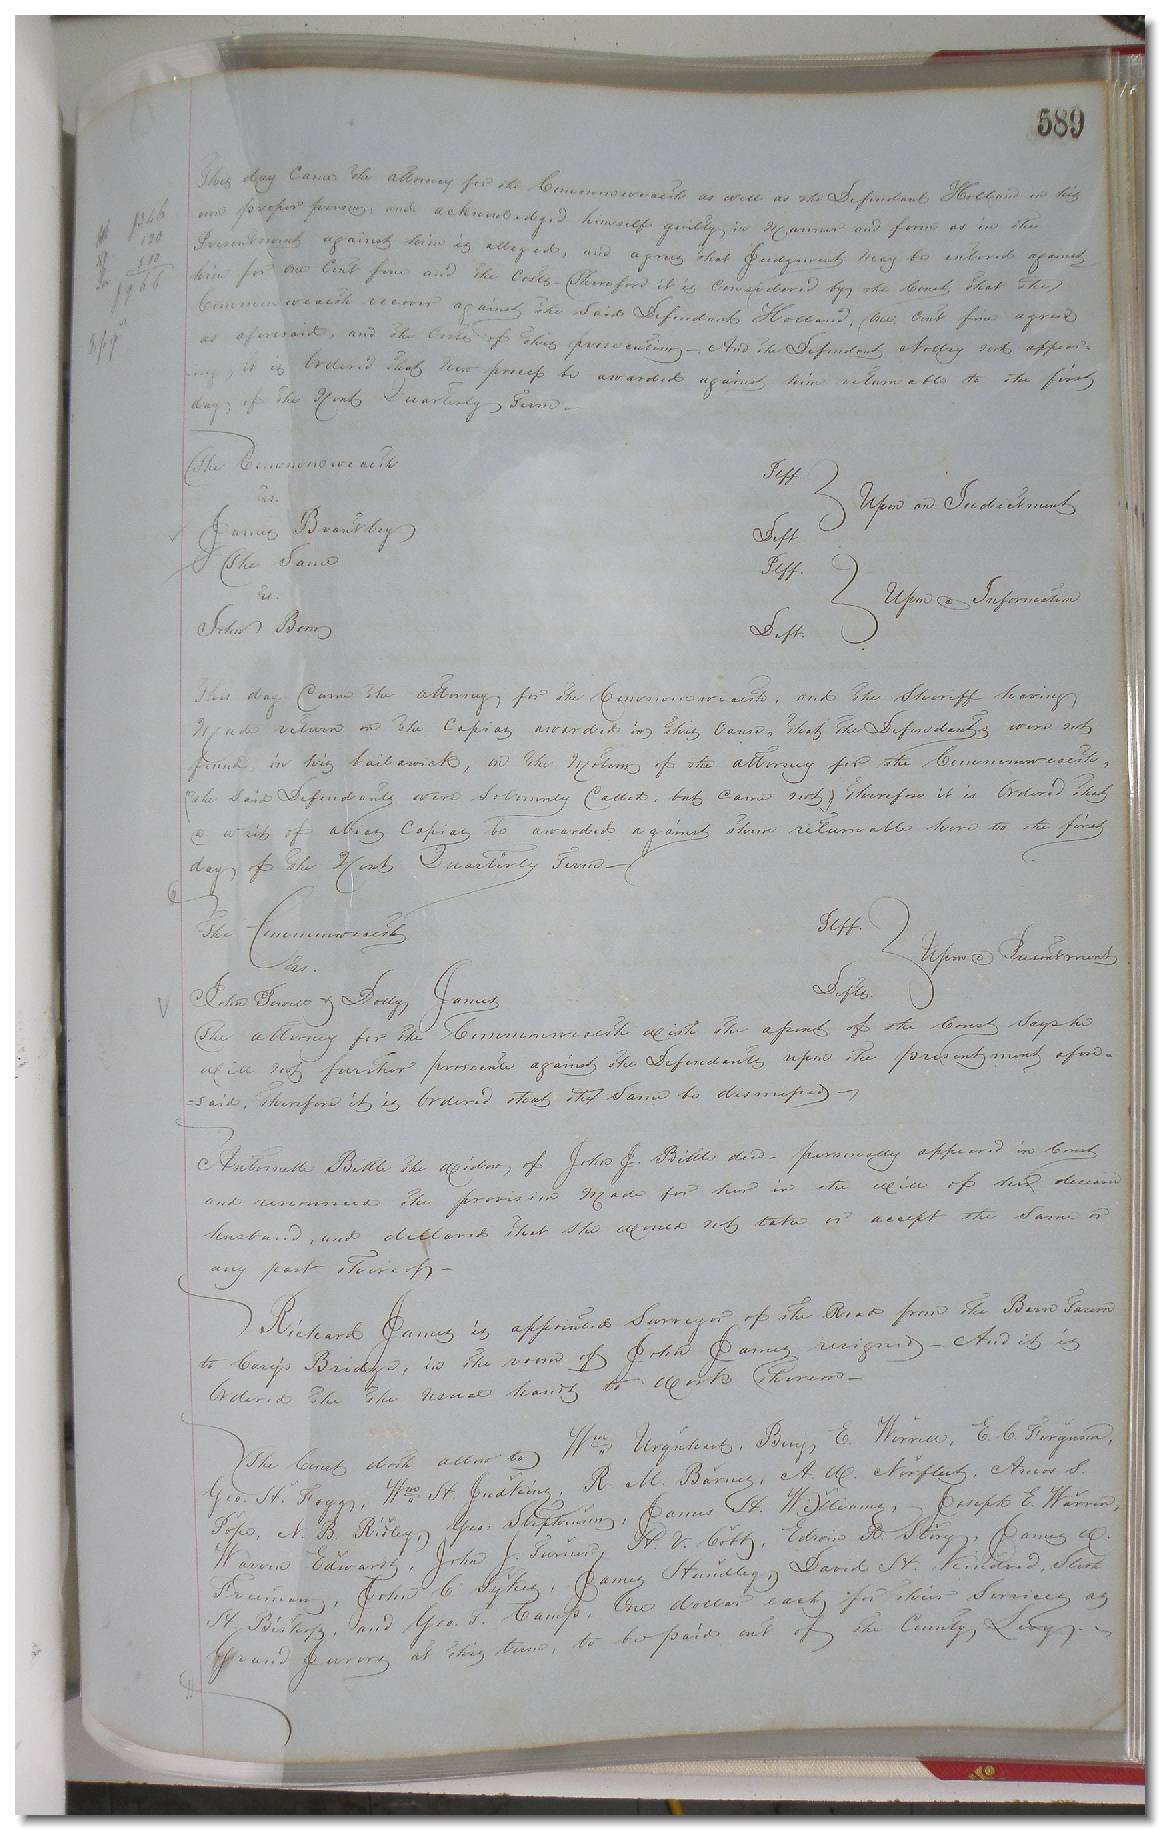 589
This day Came the attorney for the Commonwealth as well as the Defendant Holland in his
own proper person, and acknowledged himself guilty in Manner and form as in the
Presentment against him is alleged, and agrees that Judgment may be entered against
him for one Cent fine and the Costs - Therefore it is Considered by the Court that the
Commonwealth recover against the Said Defendant Holland, One Cent fine agreed
as aforesaid, and the Costs of this prosecution - And the Defendant not appear-
-ing, it is Ordered that New process be awarded against him returnable to the first
day of the Next Quarterly Term -
The Commonwealth Plff
vs. Upon an Indictment
James Brantley Deft.
The Same Plff.
vs. Upon a Information
John Deft.
This day Came the attorney for the Commonwealth, and the Sheriff having
Made return on the Capias awarded in this Cause, that the Defendants were not
found in his bailiwick, on the Motion of the attorney for the Commonwealth,
the Said Defendants were Solemnly Called, but Came not; Therefore it is Ordered that
a writ of alias Capias be awarded against them returnable here to the first
day of the Next Quarterly Term -
The Commonwealth Plff.
vs. Upon a Presentment
John & Dolly James Defts.
The attorney for the Commonwealth with the assent of the Court Says he
will not further prosecute against the Defendants upon the presentment afore-
-said, Therefore it is Ordered that the Same be dismissed -
Antoinette Bittle the widow of John J. Bittle decd. personally appeared in Court
and renounced the provision Made for her in the Will of her deceased
husband, and declared that She would not take or accept the Same or
any part thereof -
Richard James is appointed Surveyor of the Road from the Barn Tavern
to Carys Bridge, in the room of John James resigned - And it is
Ordered the the usual hands to Work Thereon -
The Court doth allow to Wm Urquhart, Benj. E. Worrell, E. C. Ferguson,
Geo. H. Foggs, Wm H. Judkins, R. M. Barnes, A. W. Norfleet, Amos S.
Pope, N. B. Ridley, Geo. Stephenson, James H. Williams, Joseph E. Warren,
Warren Edwards, John J. Turner, H. V. Cobb, Edwin B. Story, James W.
Freeman, John C. Sykes, James Hundley, David H. Kindred,
H. Bishop, and Geo. T. Camp, One dollar each for their Services as
Grand Jurors at this term, to be paid out of the County Levy. -